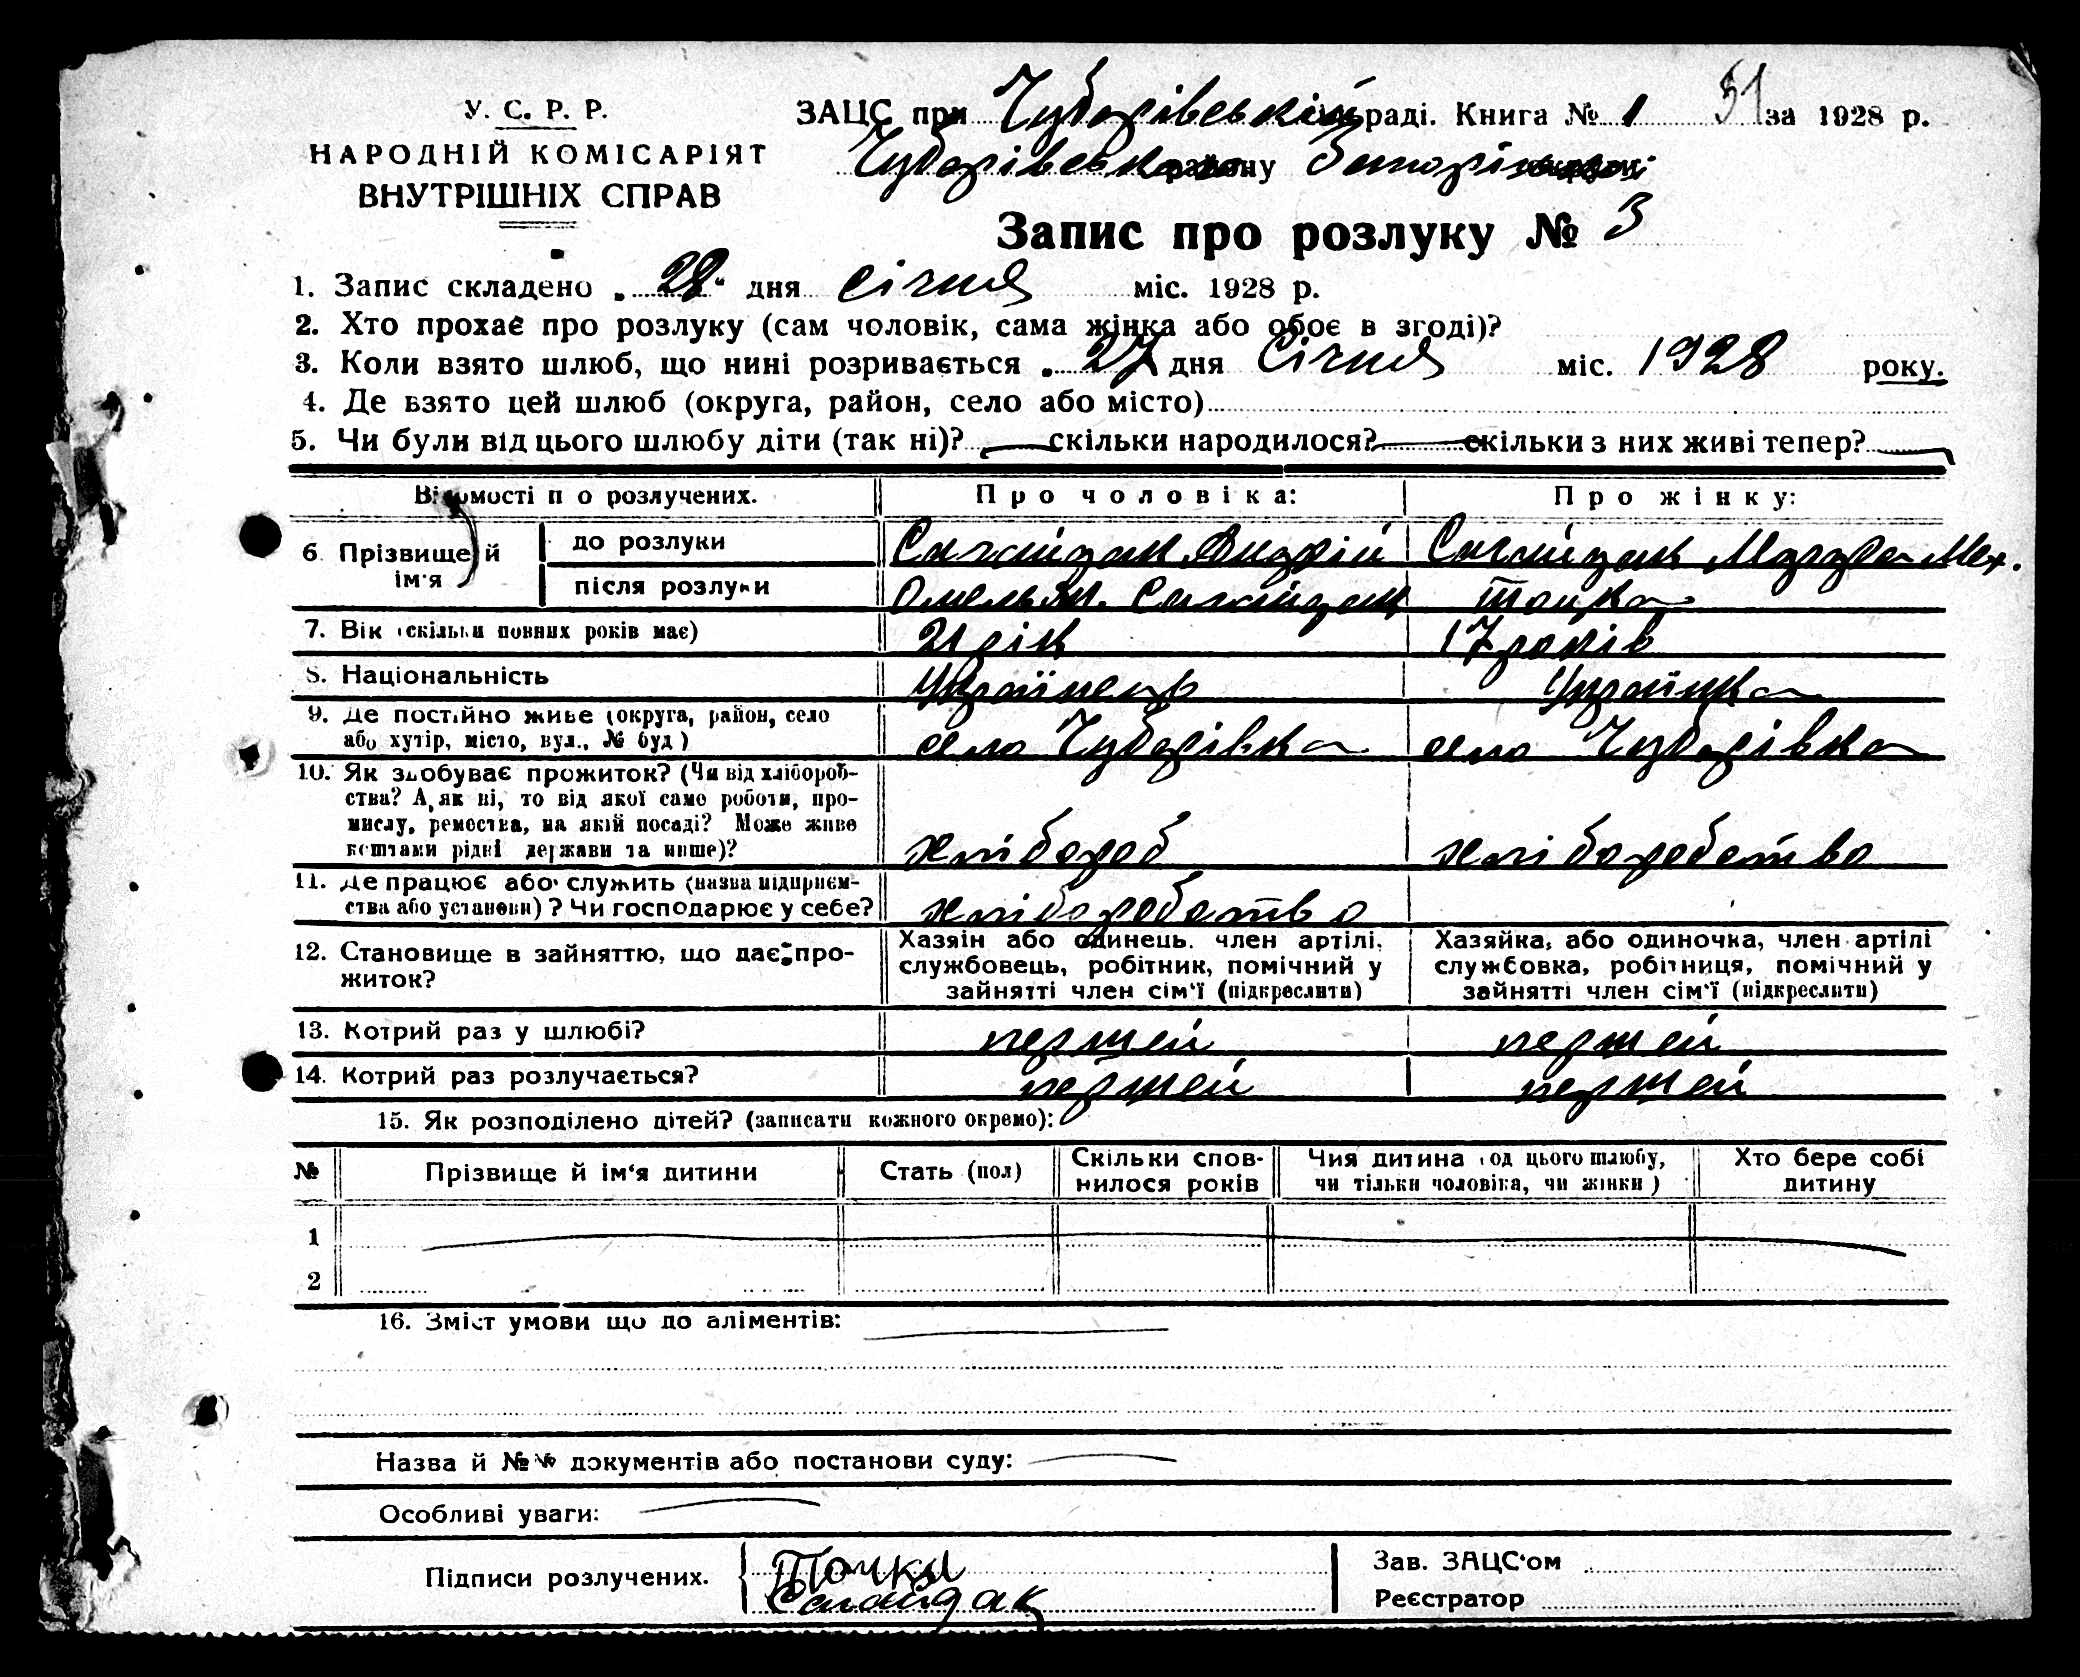 У. С. Р. Р.
НАРОДНІЙ КОМІСАРІЯТ
ВНУТРІШНІХ СПРАВ
ЗАЦС при Чубарівській раді. Книга № 1 51 за 1928 р.
Чубарівського району
Запис про розлуку № 3
1. Запис складено „28“ дня січня міс. 1928 р.
2. Хто прохає про розлуку (сам чоловік, сама жінка або обоє в згоді)?
3. Коли взято шлюб, що нині розривається „27 дня Січня міс. 1928 року.
4. Де взято цей шлюб (округа, район, село або місто)
5. Чи були від цього шлюбу діти (так ні)? скільки народилося? скільки з них живі тепер?
Відомості по розлучених. Про чоловіка: Про жінку:
6. Прізвище й ім'я
до розлуки Сагайдак Андрій Сагайдак Мех.
після розлуки Омельян. Сагайдак Точка
7. Вік (скільки повних років має) 21 рік 17 років
8. Національність Українець Українка
9. Де постійно живе (округа, район, село
або хутір, місто, вул., № буд) село Чубарівка село Чубарівка
10. Як здобуває прожиток? (Чи від хлібороб-
ства? А як ні, то від якої само роботи, про-
мислу, ремества, на якій посаді? Може живе
коштами рідні держави та инше)? хлібороб хліборобство
11. Де працює або служить (назва підприєм-
ства або установи)? Чи господарює у себе? хліборобство
12. Становище в зайняттю, що дає про-
житок?
Хазяїн або одинець, член артілі,
службовець, робітник, помічний у
зайнятті член сім'ї (підкреслити)
Хазяйка, або одиночка, член артілі
службовка, робітниця, помічний у
зайнятті член сім'ї (підкреслити)
13. Котрий раз у шлюбі? першей першей
14. Котрий раз розлучається? першей першей
15. Як розподілено дітей? (записати кожного окремо):
№ Прізвище й ім'я дитини Стать (пол) Скільки спов-нилося років Чия дитина (од цього шлюбу, чи тільки чоловіка, чи жінки) Хто бере собі дитину
1
2
16. Зміст умови що до аліментів:
Назва й №№ документів або постанови суду:
Особливі уваги:
Підписи розлучених. Точка
Сагайдак
Зав. ЗАЦС'ом
Реєстратор